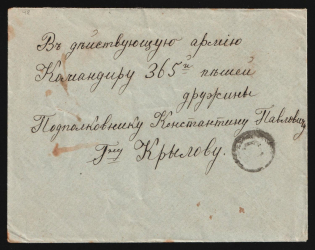 Въ дѣйствующую армію
Командиру 365й пѣшей
дружины
Подполковнику Константину Павловичу
Гну Крылову.